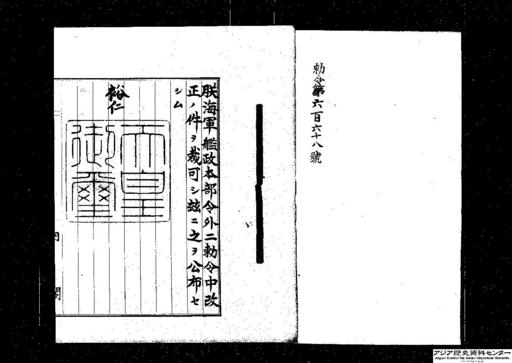 勅令第六百六十八號
朕海軍艦政本部令外二勅令中改
正ノ件ヲ裁可シ玆ニ之ヲ公布セ
シム
裕仁
天皇
御璽
内閣
アジア歴史資料センター
Japan Center for Asian Historical Records